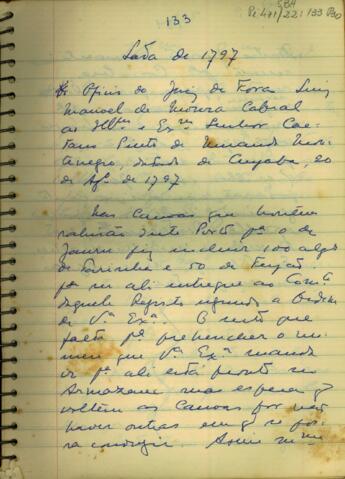 133
Lata de 1797
Oficio do Juiz de Fora Luiz
Manoel de Moura Cabral
ao Illmo e Exmo Senhor Cae-
tano Pinto de Miranda Mon-
tenegro, datado de Cuyaba, 20
de Agto de 1797
Nas canoas que hontem
sahirão deste Porto pa o de
Jauru fiz incluir 100 alqs
de farinha e 50 de Feijão
pa ser ali entregue ao Come
daquele Registo segundo a ordem
de Va Exa. O resto que
falta pa prehencher o nu-
mero que Va Exa manda
ir pa ali está pronto no
Armazem mas espera q
voltem as canoas por não
haver outras em q se pos-
sa conduzir.